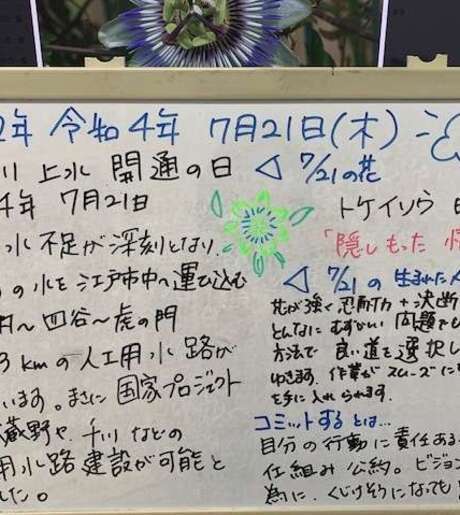 2年 令和4年 7月21日(木)
川上水 開通の日
4年 7月21日
水不足が深刻となり、
の水を江戸市中へ運び込む
村〜四谷〜虎の門
3kmの人工用水路が
います。まさに国家プロジェクト
蔵野や、千川などの
用水路建設が可能と
した。
◁ 7/21の花
トケイソウ
「隠しもった
◁ 7/21の生まれた人
が強く忍耐力+決断
どんなにむずかしい問題でも
方法で良い道を選択し
ゆきます。作業がスムーズに
を手に入れられます。
コミットするとは…
自分の行動に責任ある
仕組み公約。ビジョン
為に、くじけそうになっても